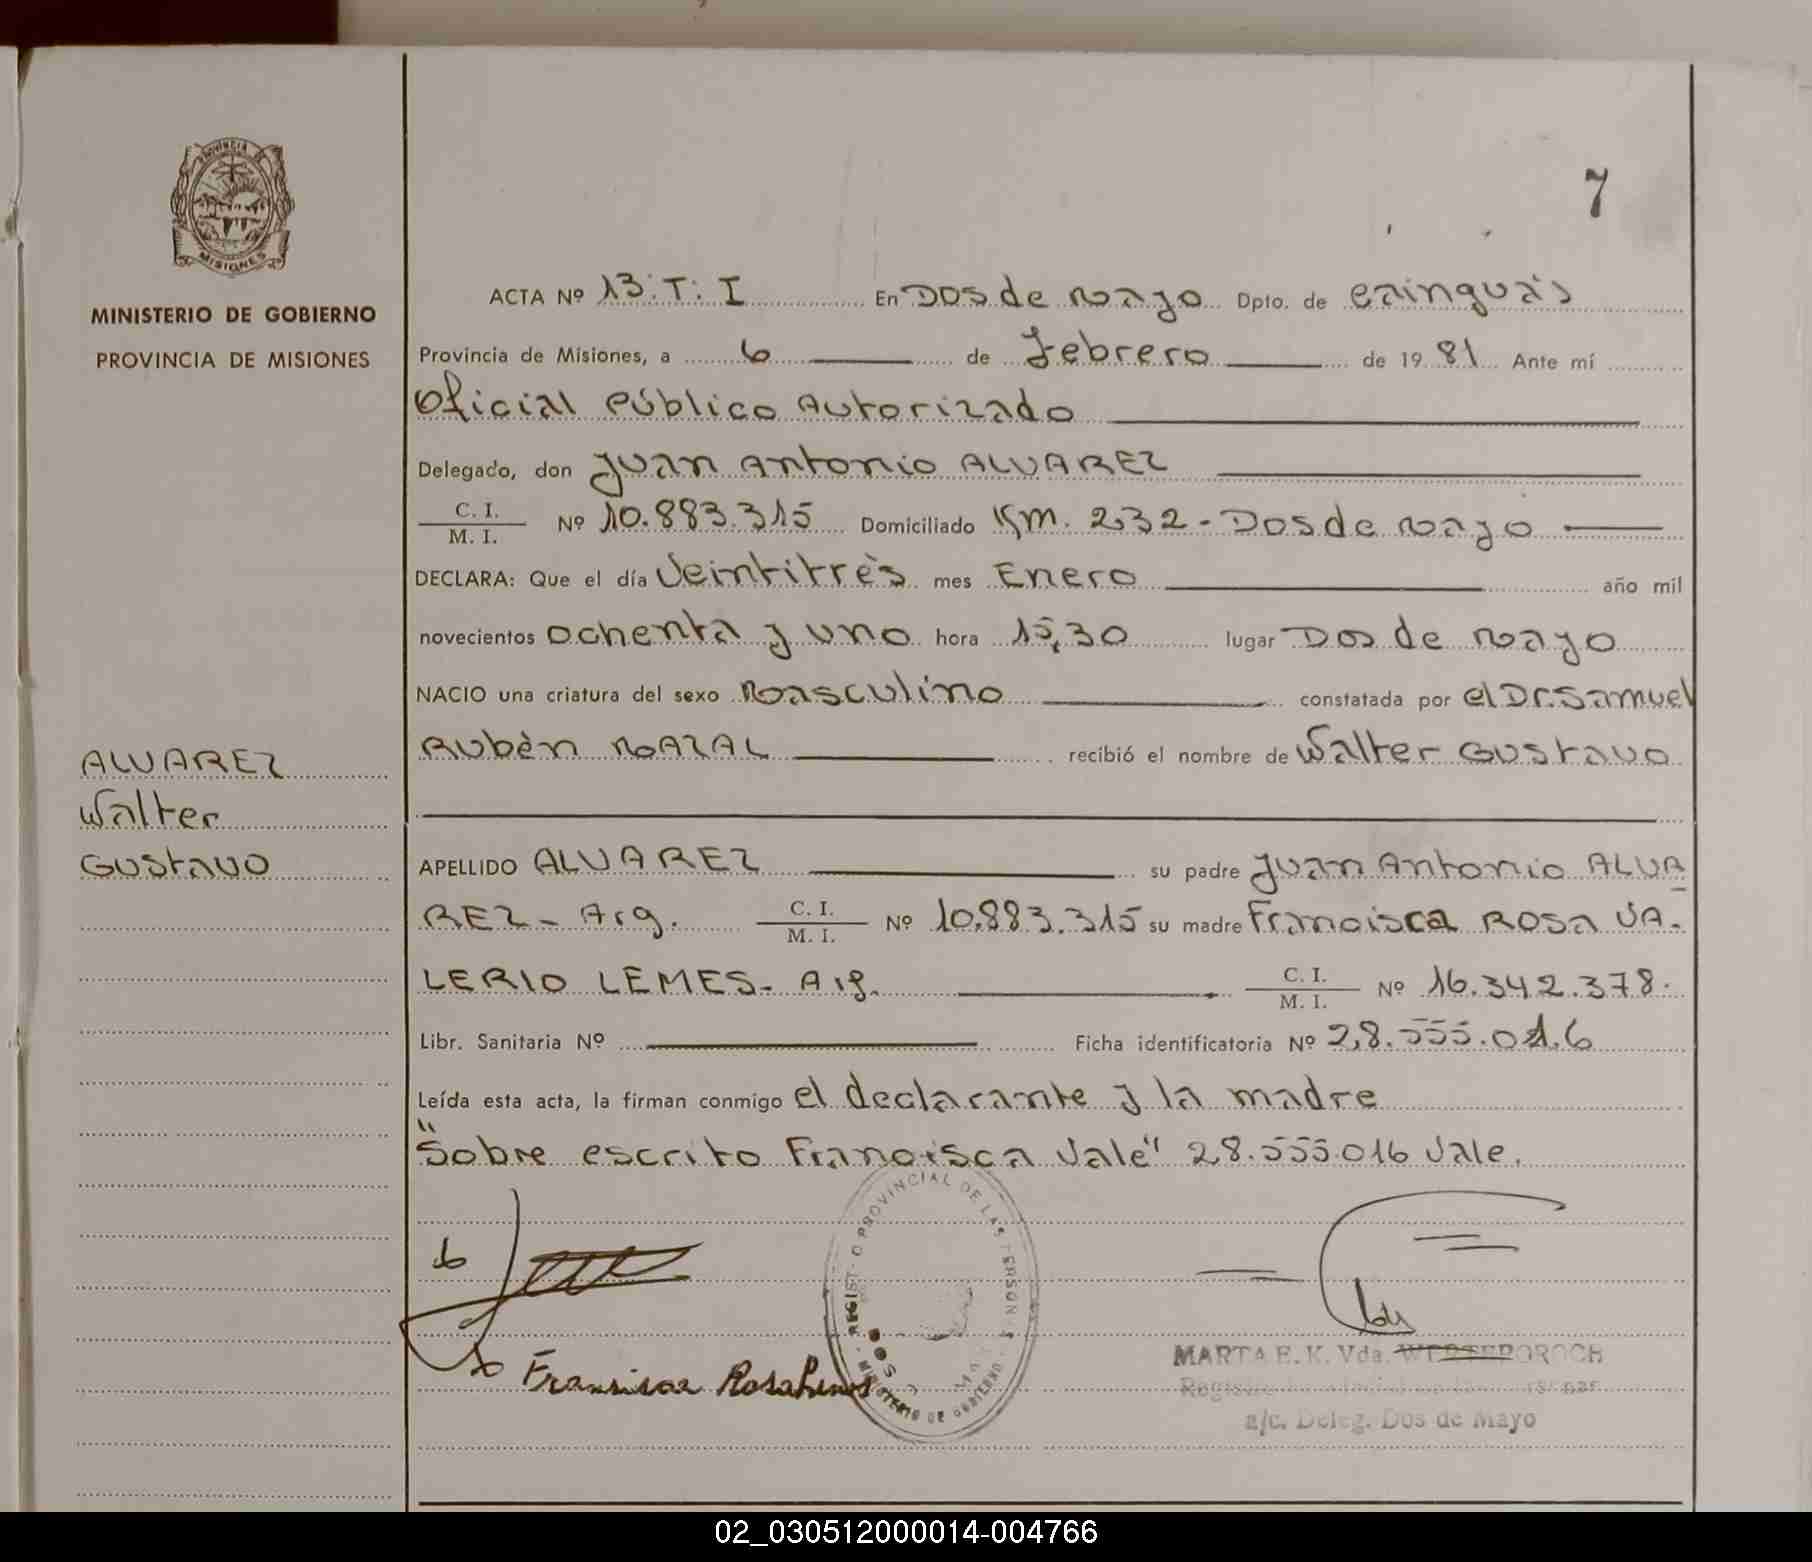 7
PROVINCIA DE
MISIONES
MINISTERIO DE GOBIERNO
PROVINCIA DE MISIONES
ACTA Nº 13.T.I En Dos de Mayo Dpto. de Cainguás
Provincia de Misiones, a 6 de Febrero de 1981 Ante mí
Oficial Público Autorizado
Delegado, don Juan Antonio ALVAREZ
C. I.
M. I. Nº 10.883.315 Domiciliado Km. 232 - Dos de Mayo
DECLARA: Que el día Veintitrès mes Enero año mil
novecientos ochenta y uno hora 15,30 lugar Dos de Mayo
NACIO una criatura del sexo Masculino constatada por el Dr. Samuel
Rubèn MAZAL recibió el nombre de Walter Gustavo
ALVAREZ
Walter
Gustavo
APELLIDO ALVAREZ su padre Juan Antonio ALVA
REZ - Arg. C. I.
M. I. Nº 10.883.315 su madre Francisca Rosa VA-
LERIO LEMES - Arg. C. I.
M. I. Nº 16.342.378.
Libr. Sanitaria Nº Ficha identificatoria Nº 28.555.016
Leída esta acta, la firman conmigo el declarante y la madre
"Sobre escrito Francisca Vale" 28.555.016 Vale.
REGISTRO PROVINCIAL DE LAS PERSONAS
MINISTERIO DE GOBIERNO
DOS
Francisca Rosa Lemes
MARTA E. K. Vda.
a/c. Deleg. Dos de Mayo
02_030512000014-004766